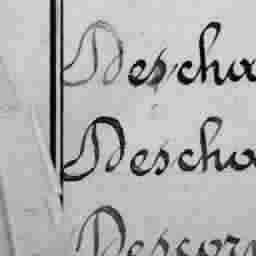 Descha
Descho
Descorn